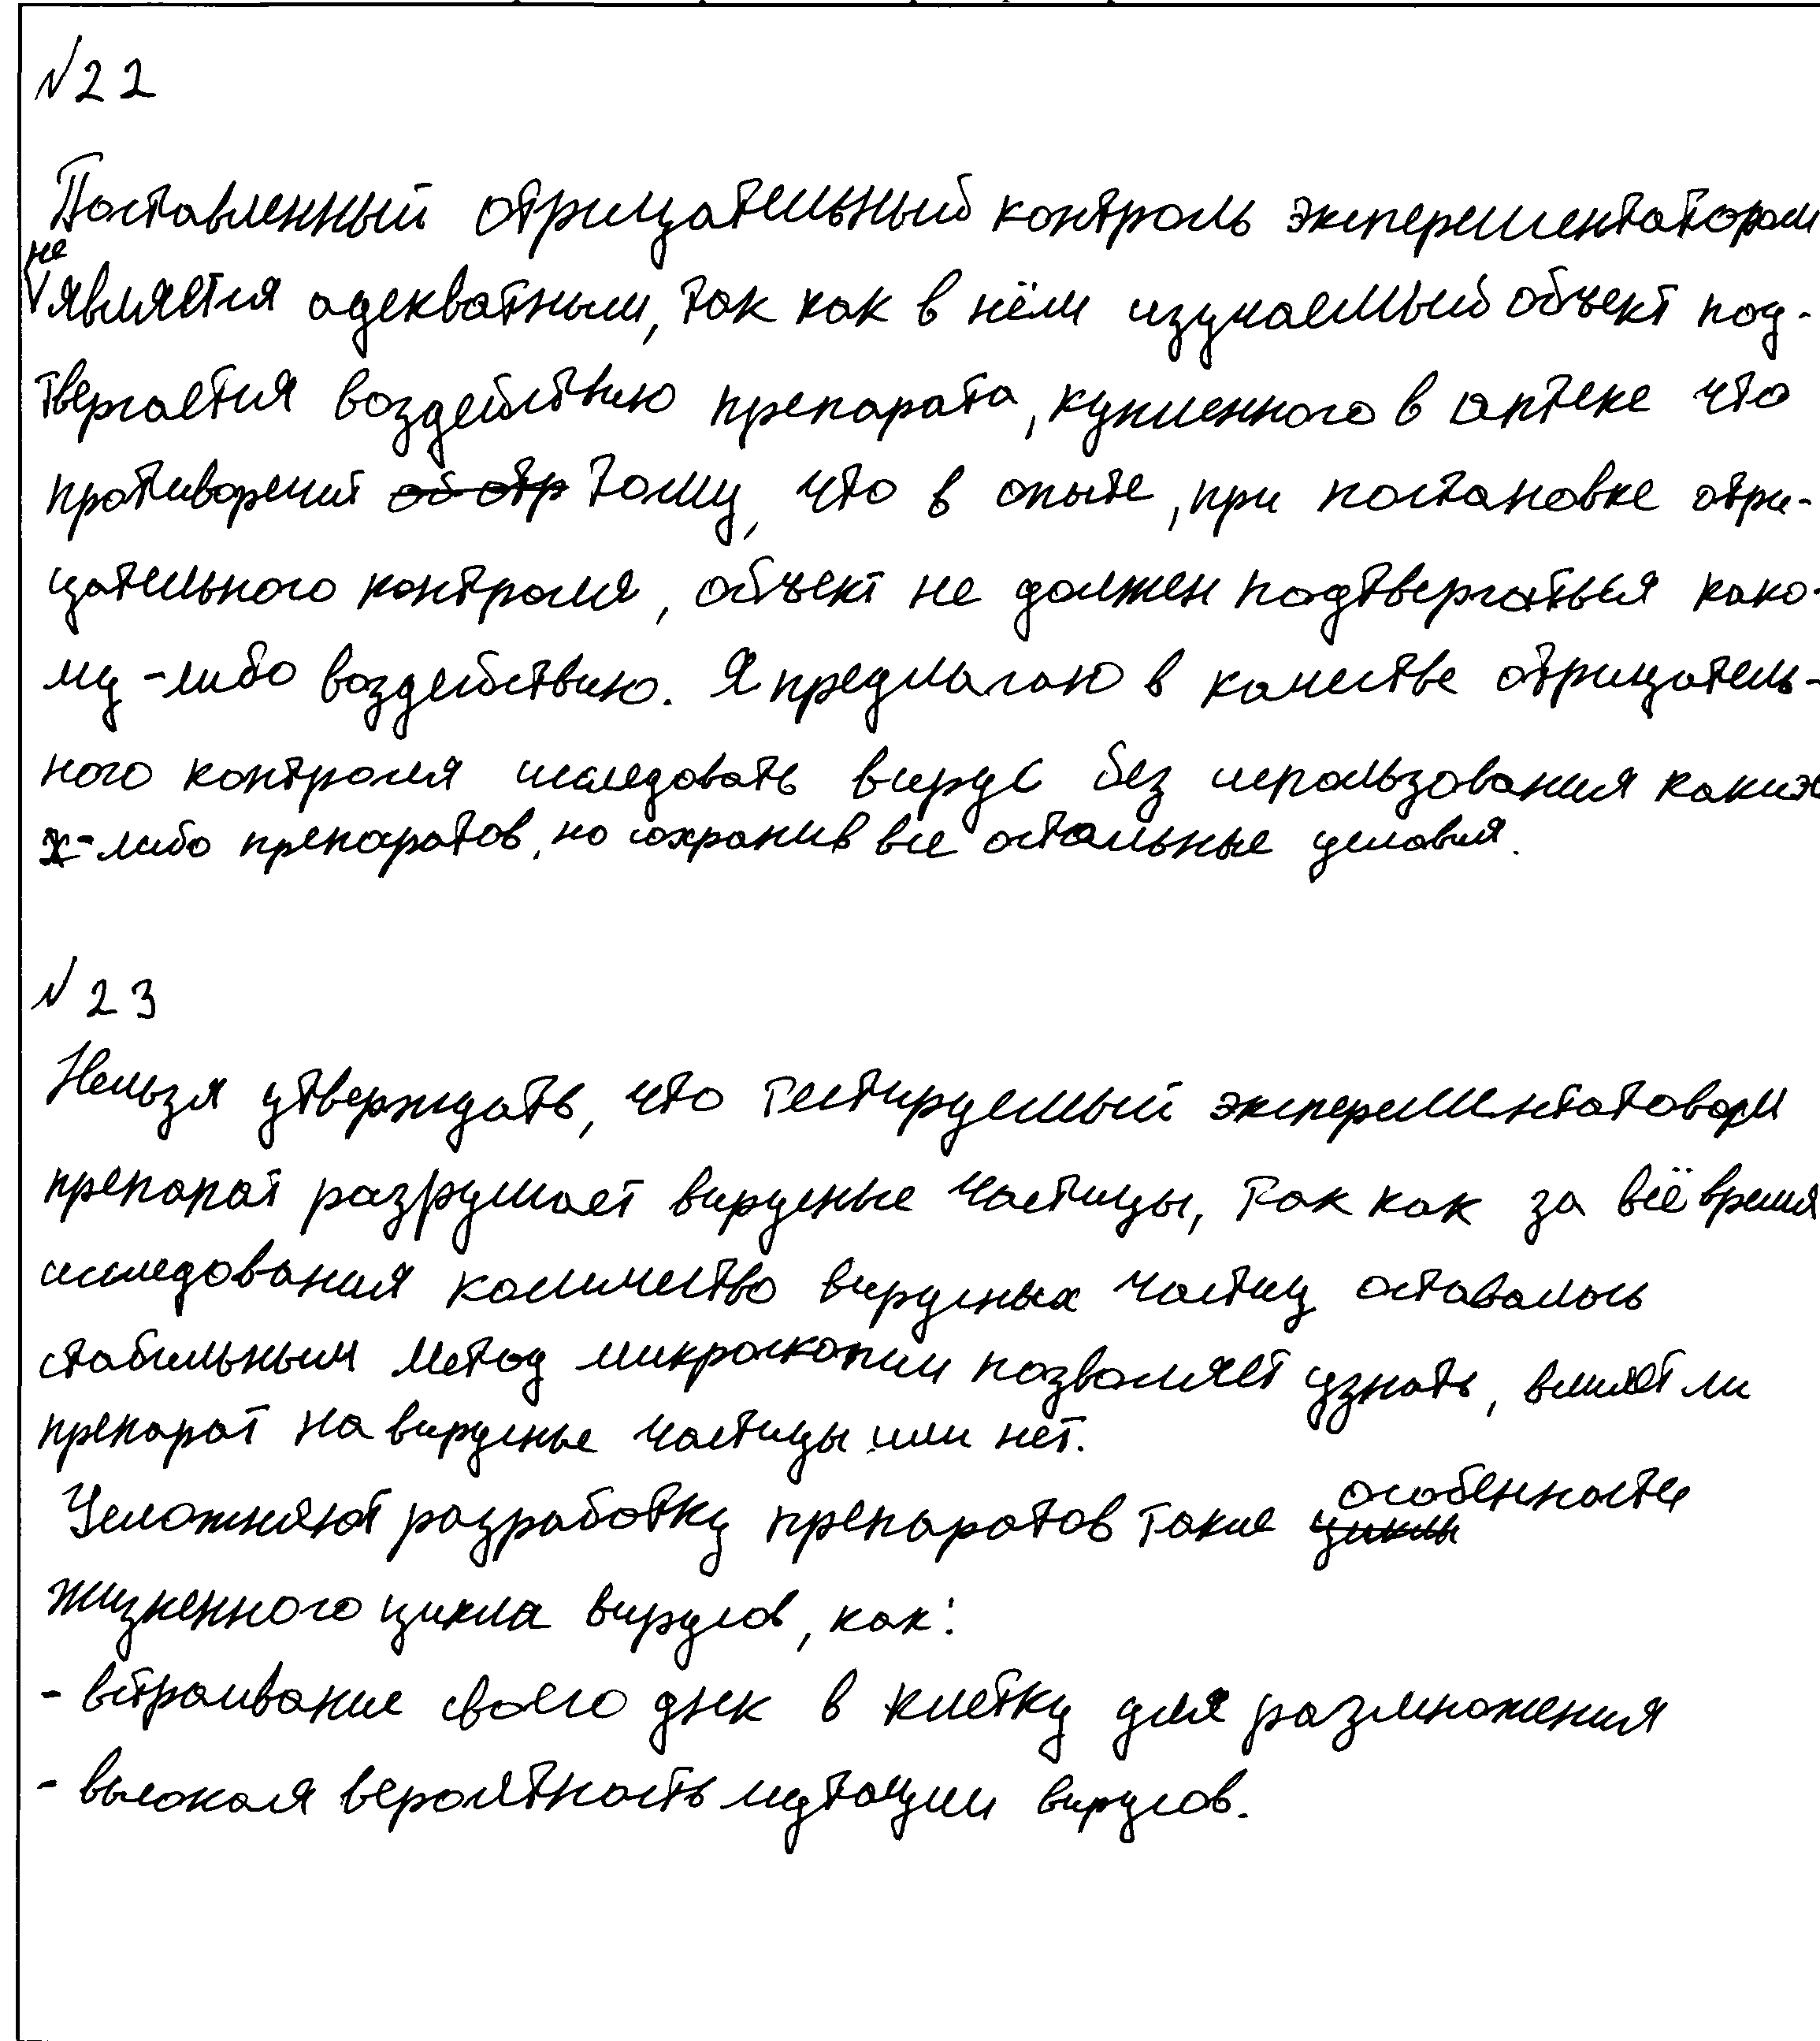 №22
Поставленный отрицательный контроль эксперементатором
не
является адекватным, так как в нём изучаемый объект под-
твергается воздействию препарата, купленного в аптеке что
противоречит об отр тому, что в опыте, при постановке отри-
цательного контроля, объект не должен подтвергаться како-
му-либо воздействию. Я предлагаю в качестве отрицатель-
ного контроля исследовать вирус без использования каких
х-либо препаратов, но сохранив все остальные условия.
№23
Нельзя утверждать, что тестируемый эксперементатовором
препарат разрушает вирусные частицы, так как за всё время
исследования количество вирусных частиц оставалось
стабильным Метод микроскопии позволяет узнать, влияет ли
препарат на вирусные частицы или нет.
Усложняют разработку препаратов такие циклы особенности
жизненного цикла вирусов, как:
- встраивание своего днк в клетку для размножения
- высокая вероятность мутации вирусов.